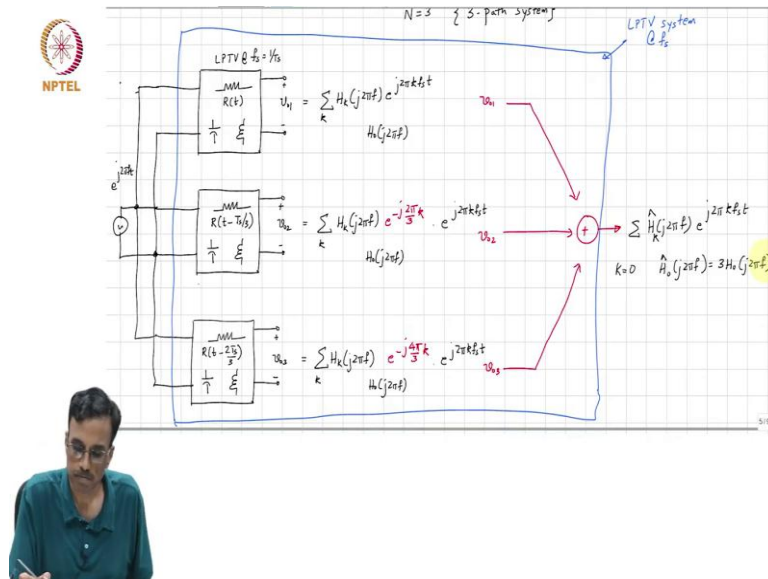 N=3 { 3-path system}
LPTV system
@ fs
NPTEL
LPTV @ fs = 1/Ts
R(t)
v01 = ∑k Hk(j2πf) e^{j2πkfst}
H0(j2πf)
v01
e^{j2πft}
v
R(t-Ts/3)
v02 = ∑k Hk(j2πf) e^{-j2π/3 k} . e^{j2πkfst}
H0(j2πf)
v02
+ ∑ Ĥk(j2πf) e^{j2πkfst}
k=0 Ĥ0(j2πf) = 3H0(j2πf)
R(t-2Ts/3)
v03 = ∑k Hk(j2πf) e^{-j4π/3 k} . e^{j2πkfst}
H0(j2πf)
v03